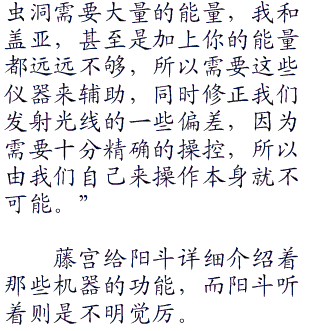 虫洞需要大量的能量，我和
盖亚，甚至是加上你的能量
都远远不够，所以需要这些
仪器来辅助，同时修正我们
发射光线的一些偏差，因为
需要十分精确的操控，所以
由我们自己来操作本身就不
可能。”
藤宫给阳斗详细介绍着
那些机器的功能，而阳斗听
着则是不明觉厉。